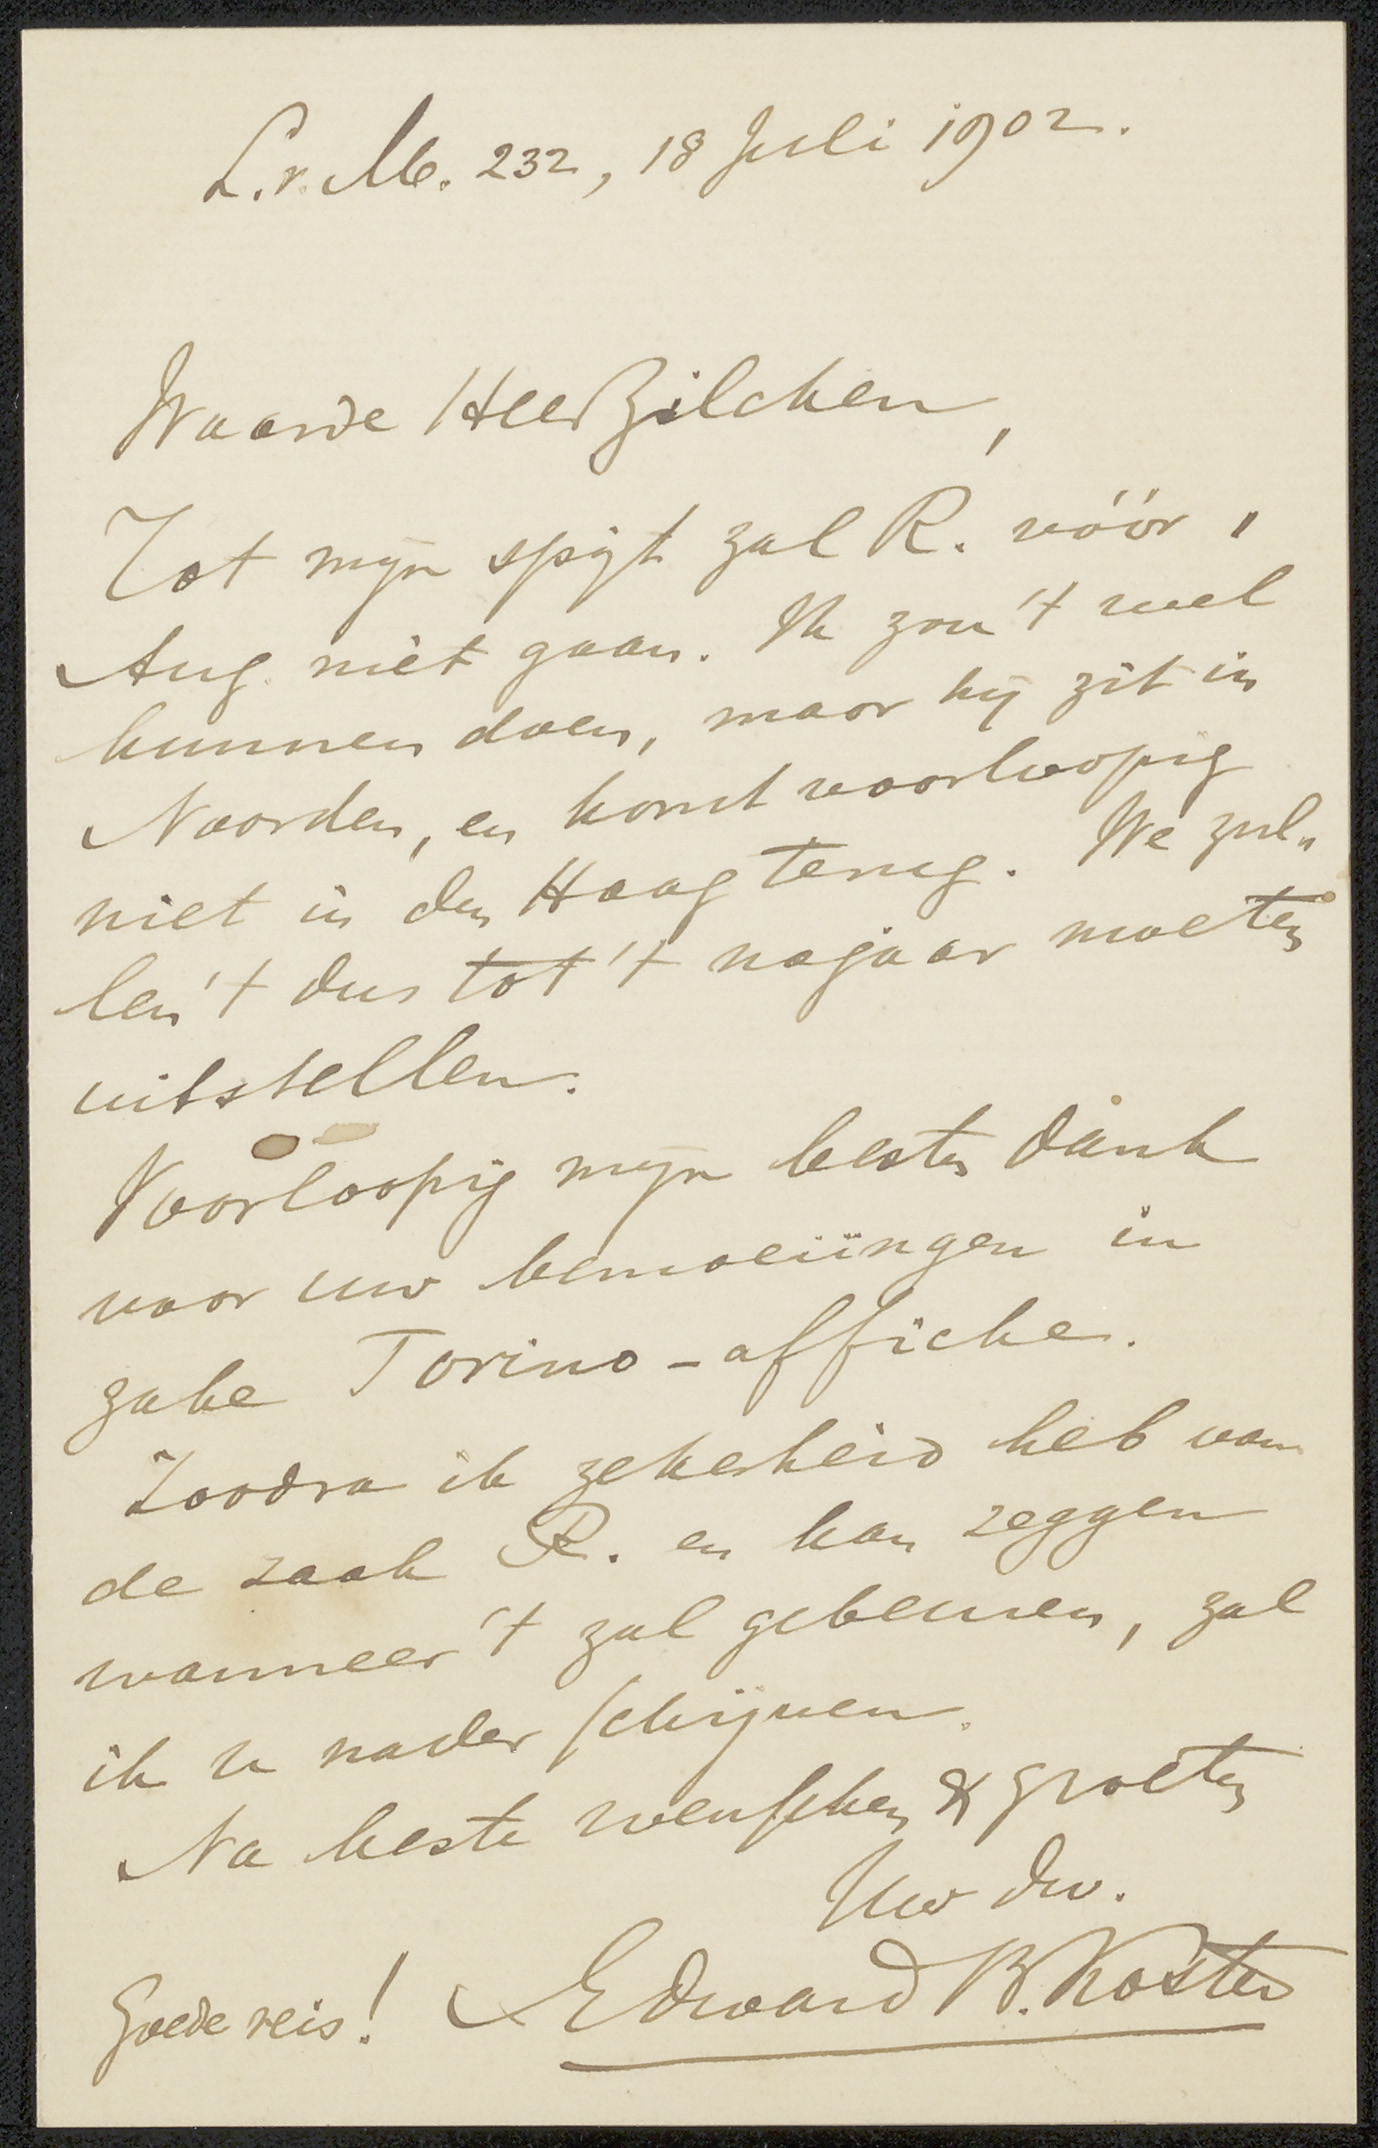 L.v.M. 232, 18 Juli 1902.
Waarde Heer Zilcken,
Tot mijn spijt zal R. vóór 1
Aug. niet gaan. Ik zou 't wel
kunnen doen, maar hij zit in
Noorden, en komt voorloopig
niet in den Haag terug. We zul„
len 't dus tot 't najaar moeten
uitstellen.
Voorloopig mijn besten dank
voor uw bemoeiïngen in
zake Torino-affiche.
Zoodra ik zekerheid heb van
de zaak R. en kan zeggen
wanneer 't zal gebeuren, zal
ik u nader schrijven.
Na beste wenschen & groeten
Uw dw.
Goede reis! Edward B. Koster